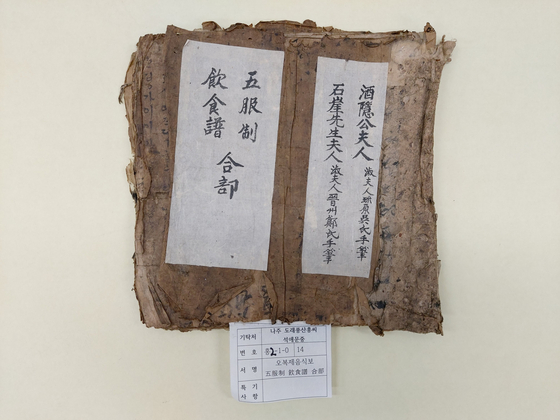 酒隱公夫人 淑夫人 原吳氏手筆
石崖先生夫人 淑夫人晋州鄭氏手筆
五服制
飮食譜
合部
기탁처 나주 도래풍산홍씨
석애문중
번 호 홍2-1-0 14
서 명 오복제음식보
五服制 飮食譜 合部
특 기
사 항